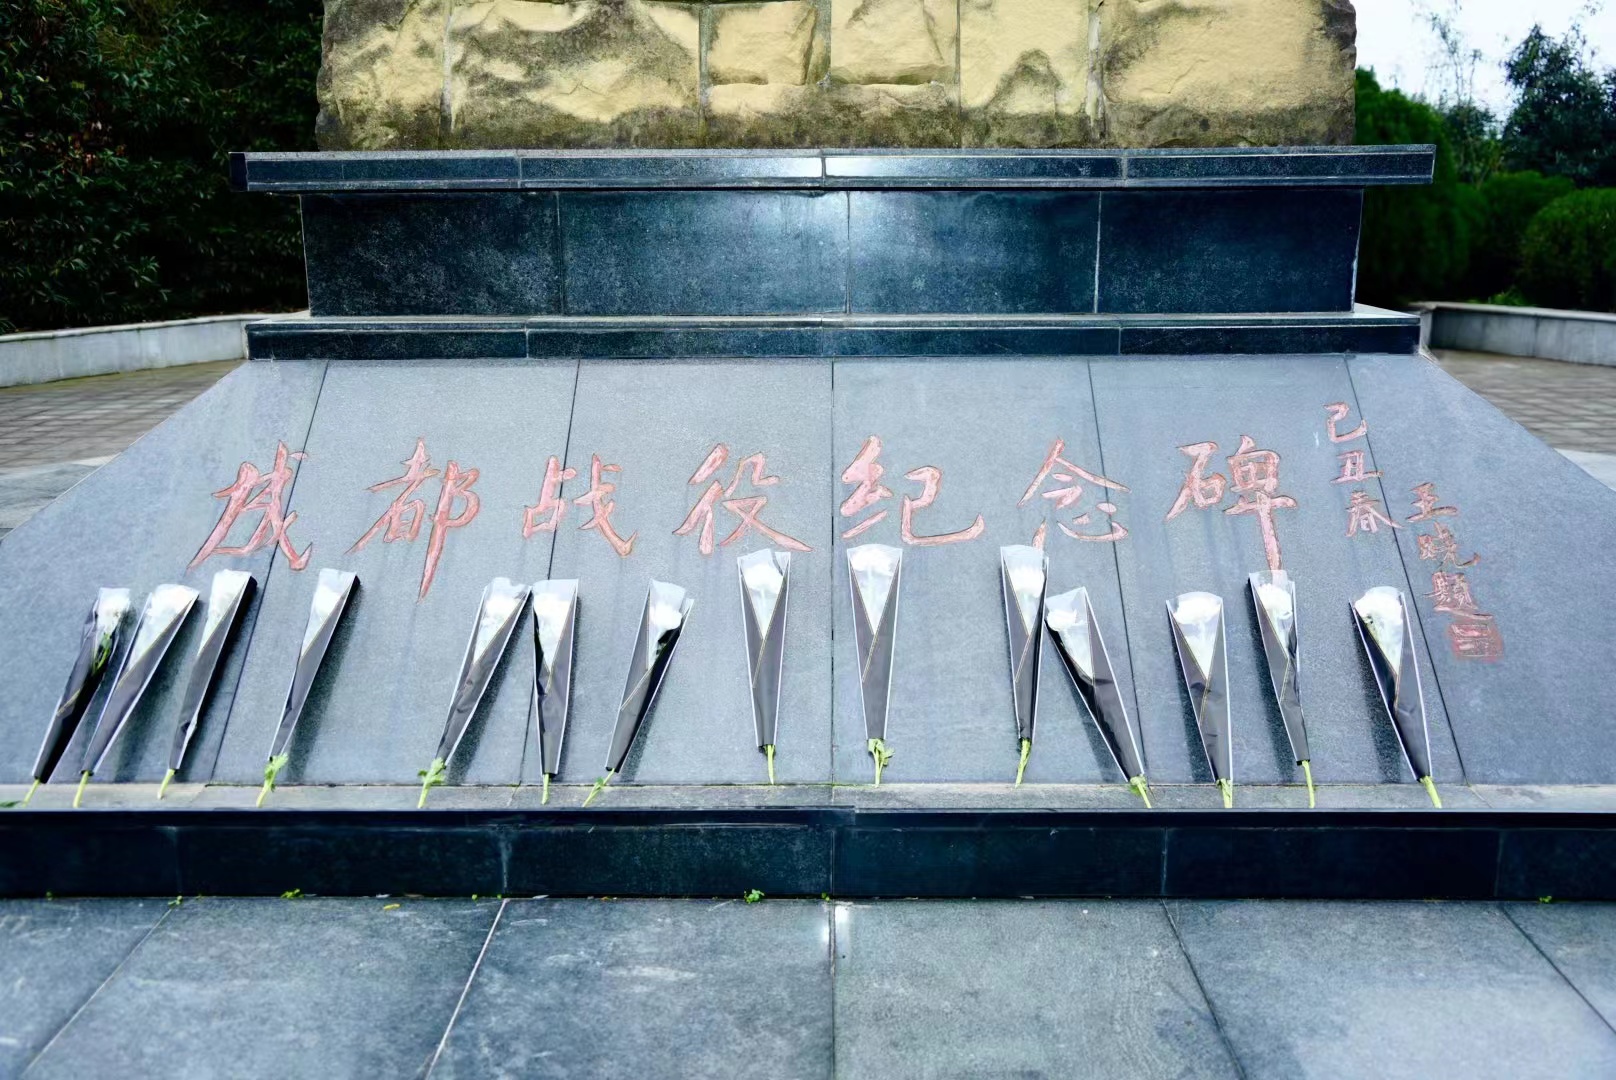 成都战役纪念碑
己丑春
王晓题